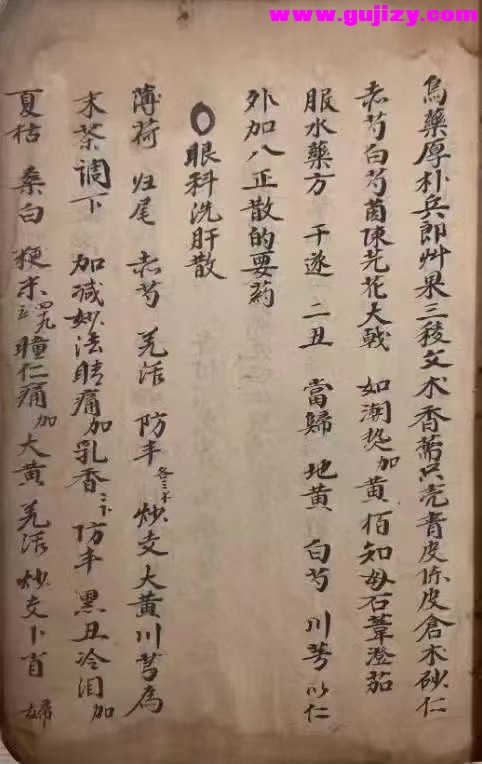 www.gujizy.com
烏藥厚朴兵郎艸果三稜文木香薷只壳青皮陈皮倉木砂仁
赤芍白芍茵陳芫花大戟 如潮热加黄栢知母石葦澄茄
服水藥方 干遂 二丑 當歸 地黄 白芍 川芎 以仁
外加八正散的要药
眼科洗肝散
薄荷 归尾 赤芍 羌活 防丰 各三 炒支大黄川芎為
末茶調下 加减妙法睛痛加乳香 防丰 黑丑冷泪加
夏枯 桑白 粳米 瞳仁痛加大黄 羌活 炒支卜首 婦